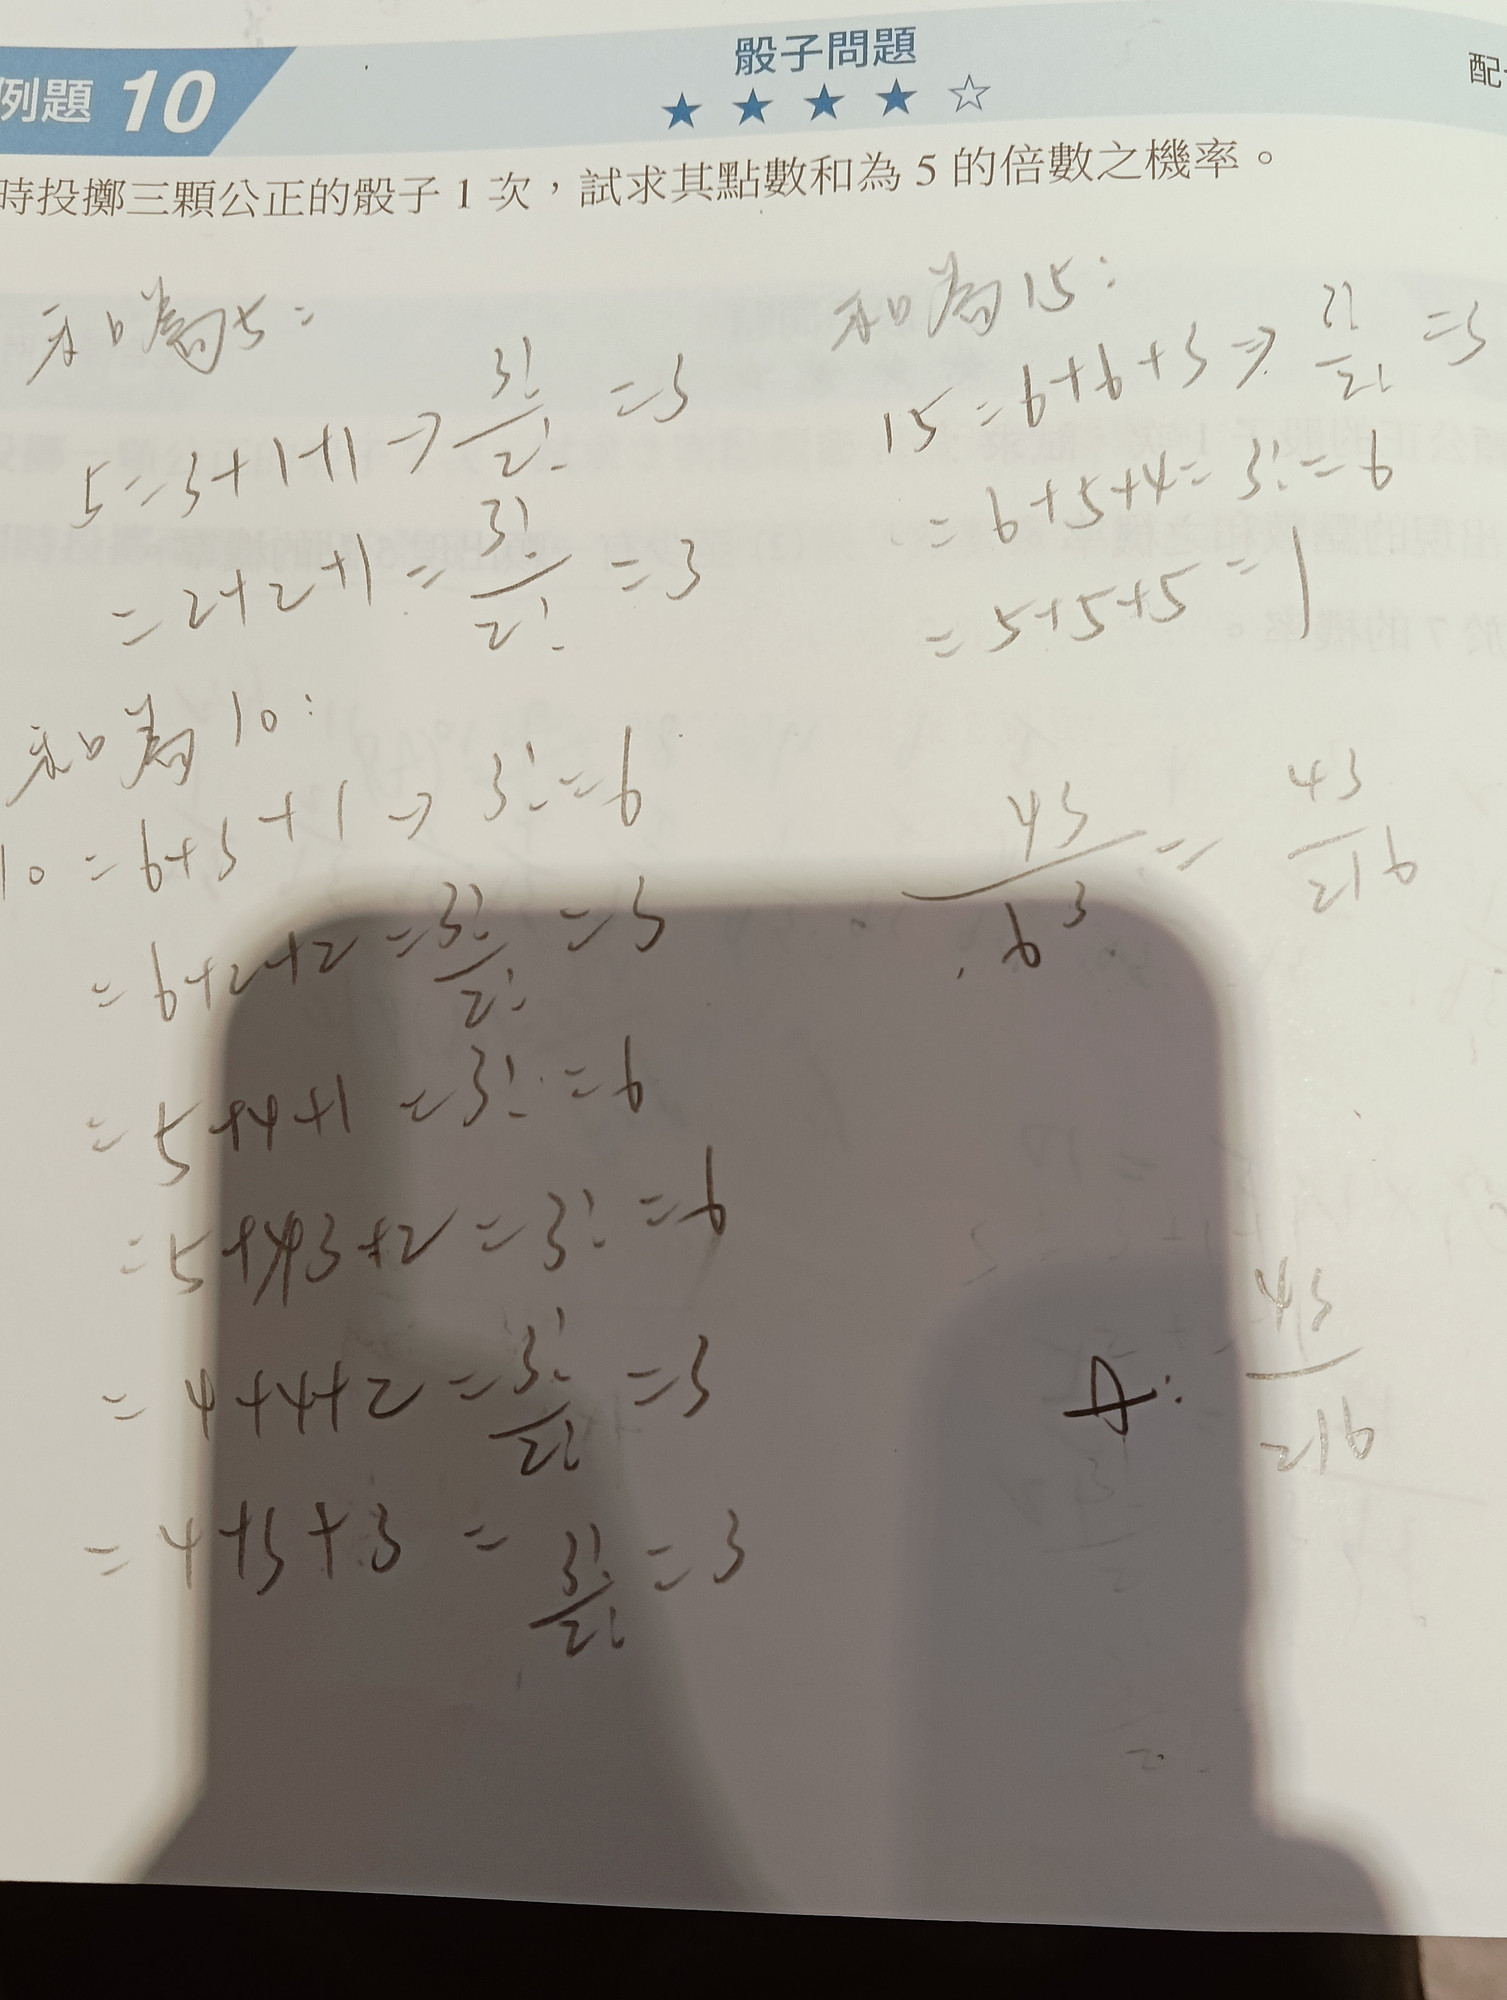 骰子問題
例題 10
★★★★☆
配
時投擲三顆公正的骰子 1 次，試求其點數和為 5 的倍數之機率。
和為5：
5=3+1+1→3!/2!=3
=2+2+1=3!/2!=3
和為10：
10=6+3+1→3!=6
=6+2+2=3!/2!=3
=5+4+1=3!=6
=5+3+2=3!=6
=4+4+2=3!/2!=3
=4+3+3=3!/2!=3
和為15：
15=6+6+3→3!/2!=3
=6+5+4=3!=6
=5+5+5=1
43/6³=43/216
A：43/216